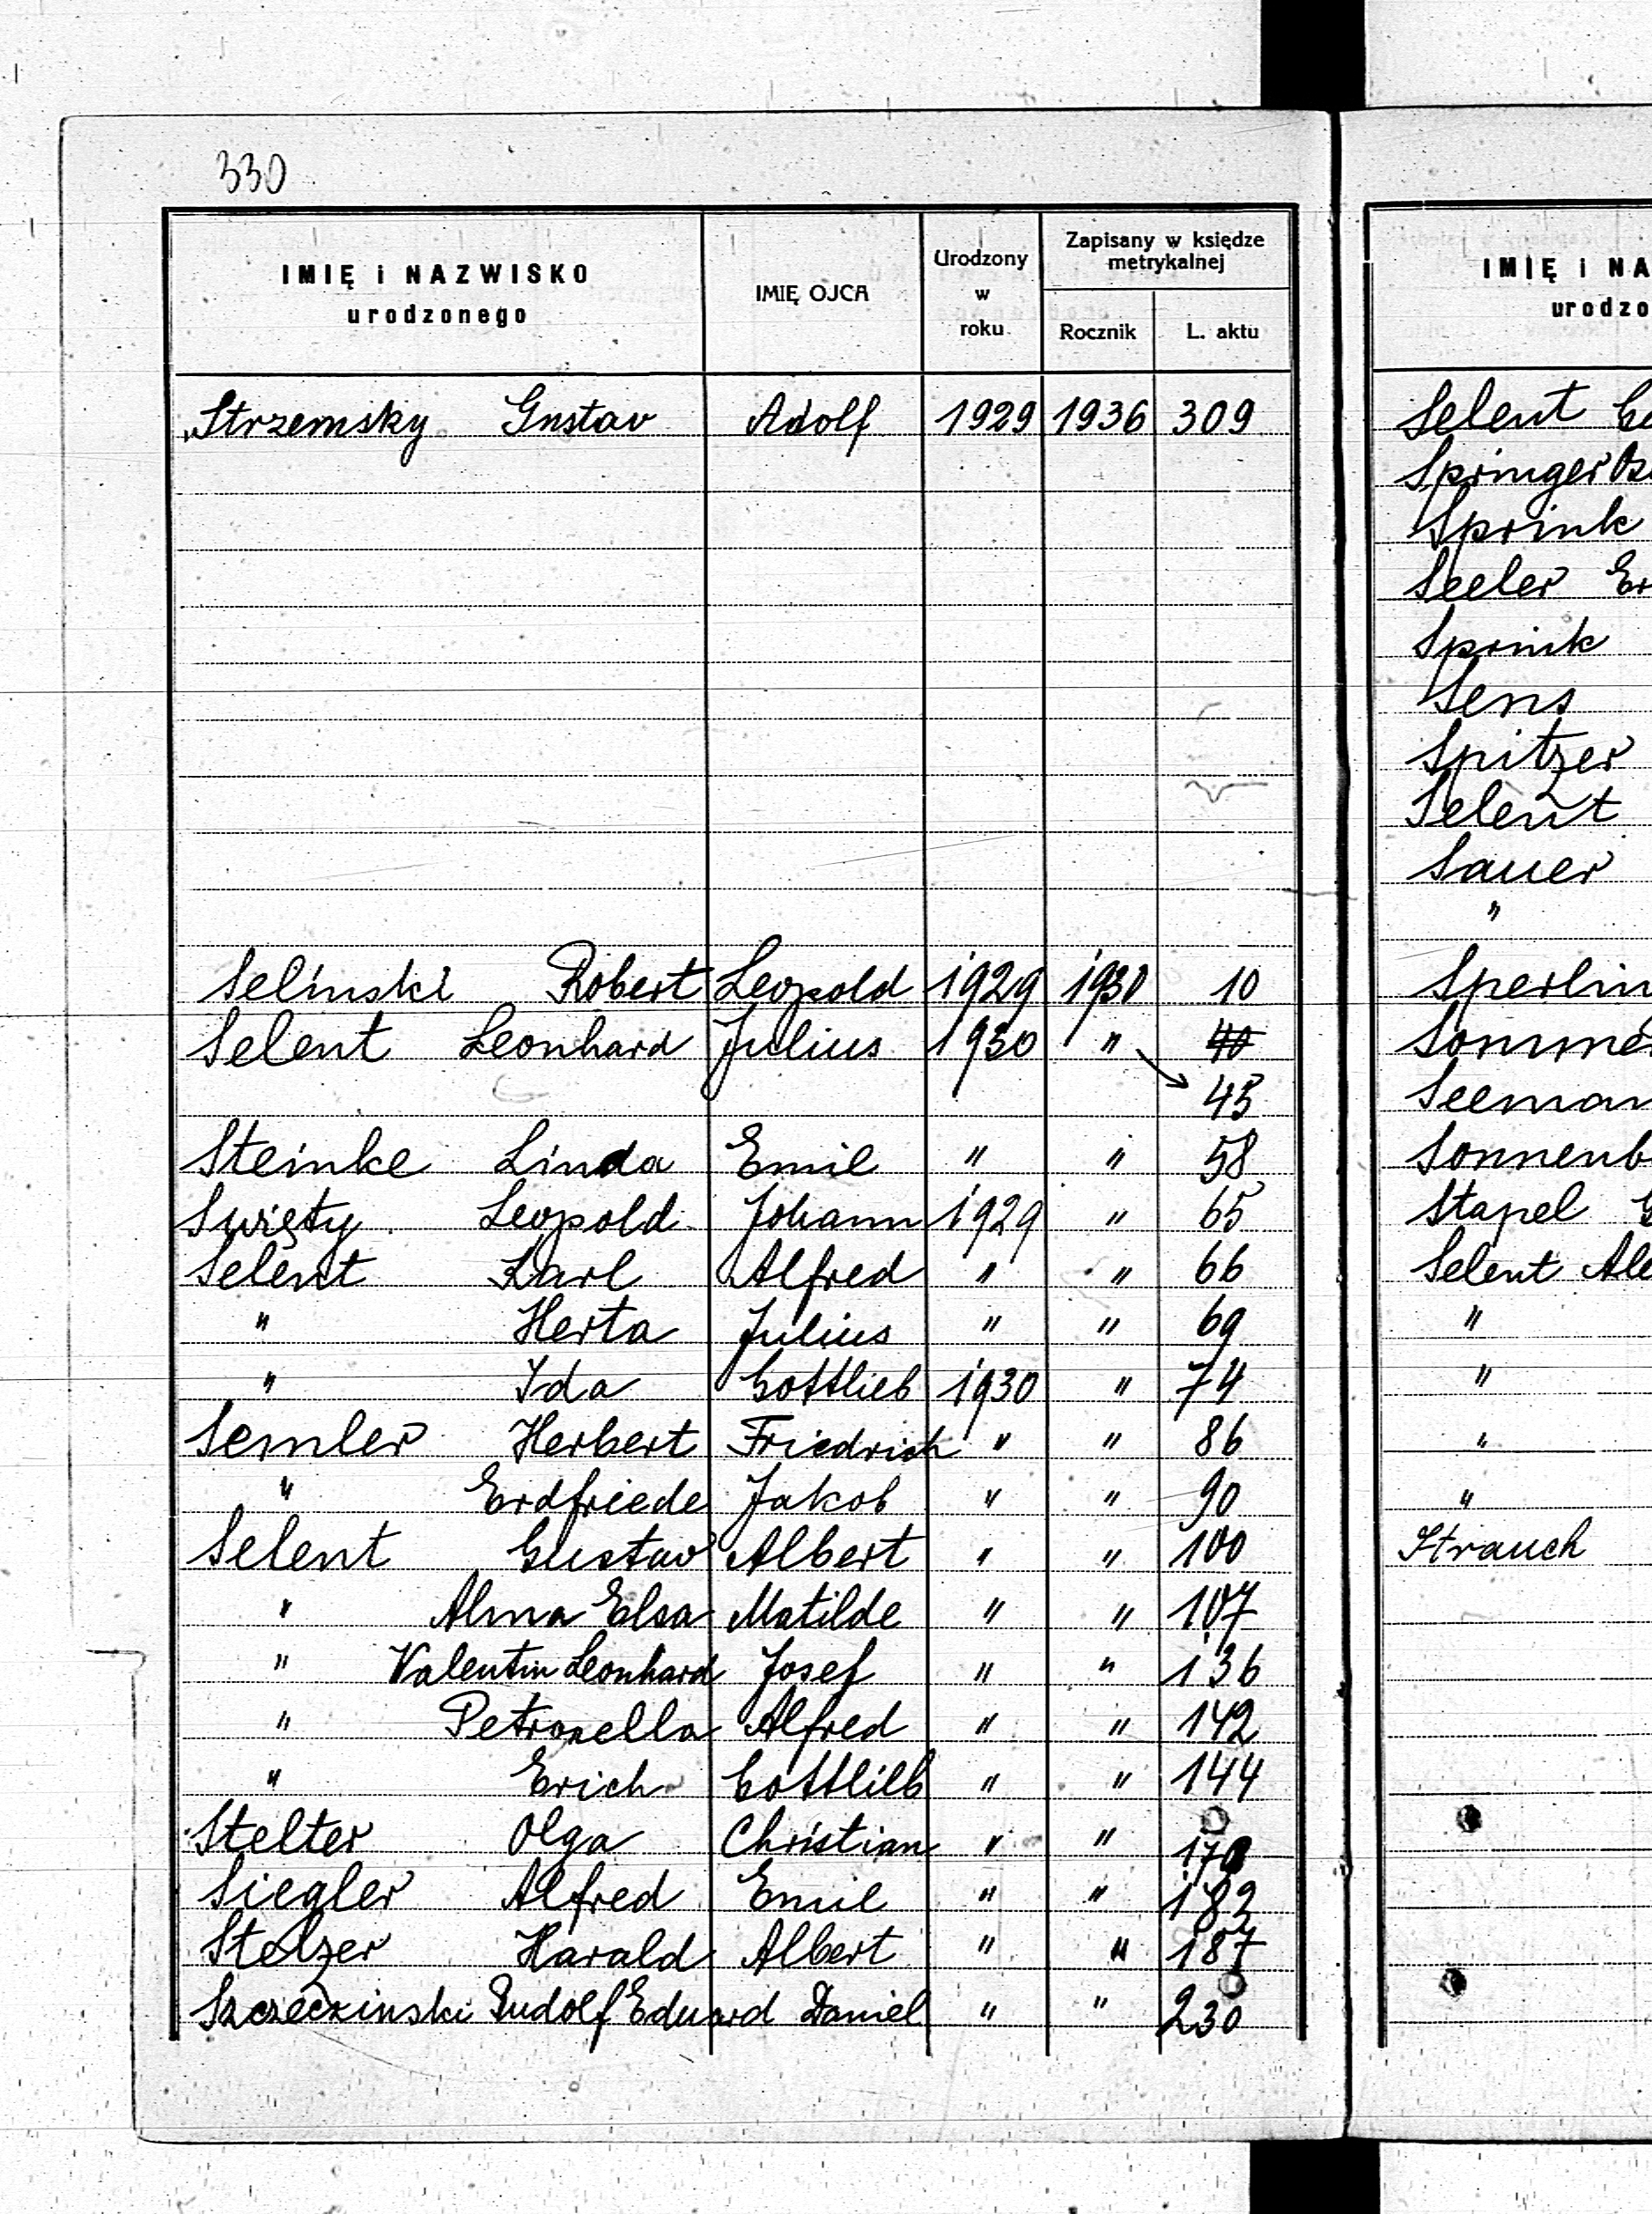 330
IMIĘ i NAZWISKO urodzonego IMIĘ OJCA Urodzony w roku Zapisany w księdze metrykalnej Rocznik L. aktu
Strzemsky Gustav Adolf 1929 1936 309
Selinski Robert Leopold 1929 1930 10
Selent Leonhard Julius 1930 " 40
45
Steinke Linda Emil " " 58
Święty Leopold Johann 1929 " 65
Selent Karl Alfred " " 66
" Herta Julius " " 69
" Ida Gottlieb 1930 " 74
Semler Herbert Friedrich " " 86
" Erdfriede Jakob " " 90
Selent Gustav Albert " " 100
" Alma Elsa Matilde " " 107
" Valentin Leonhard Josef " " 136
" Petronella Alfred " " 142
" Erich Gottlieb " " 144
Stelter Olga Christian " "
Siegler Alfred Emil " " 182
Stelzer Harald Albert " " 187
Szczeczinski Rudolf Eduard Daniel " " 230
IMIĘ i NA
urodzo
Selent
Springer
Sprink
Seeler Er
Sprink
Sens
Spitzer
Selent
Sauer
"
Sperlin
Somme
Seeman
Sonnenb
Stapel
Selent Ale
"
"
"
"
Strauch